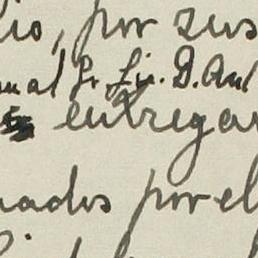 io, por sus
nal Sr. Lic. D. Ant
entregar
nados por el